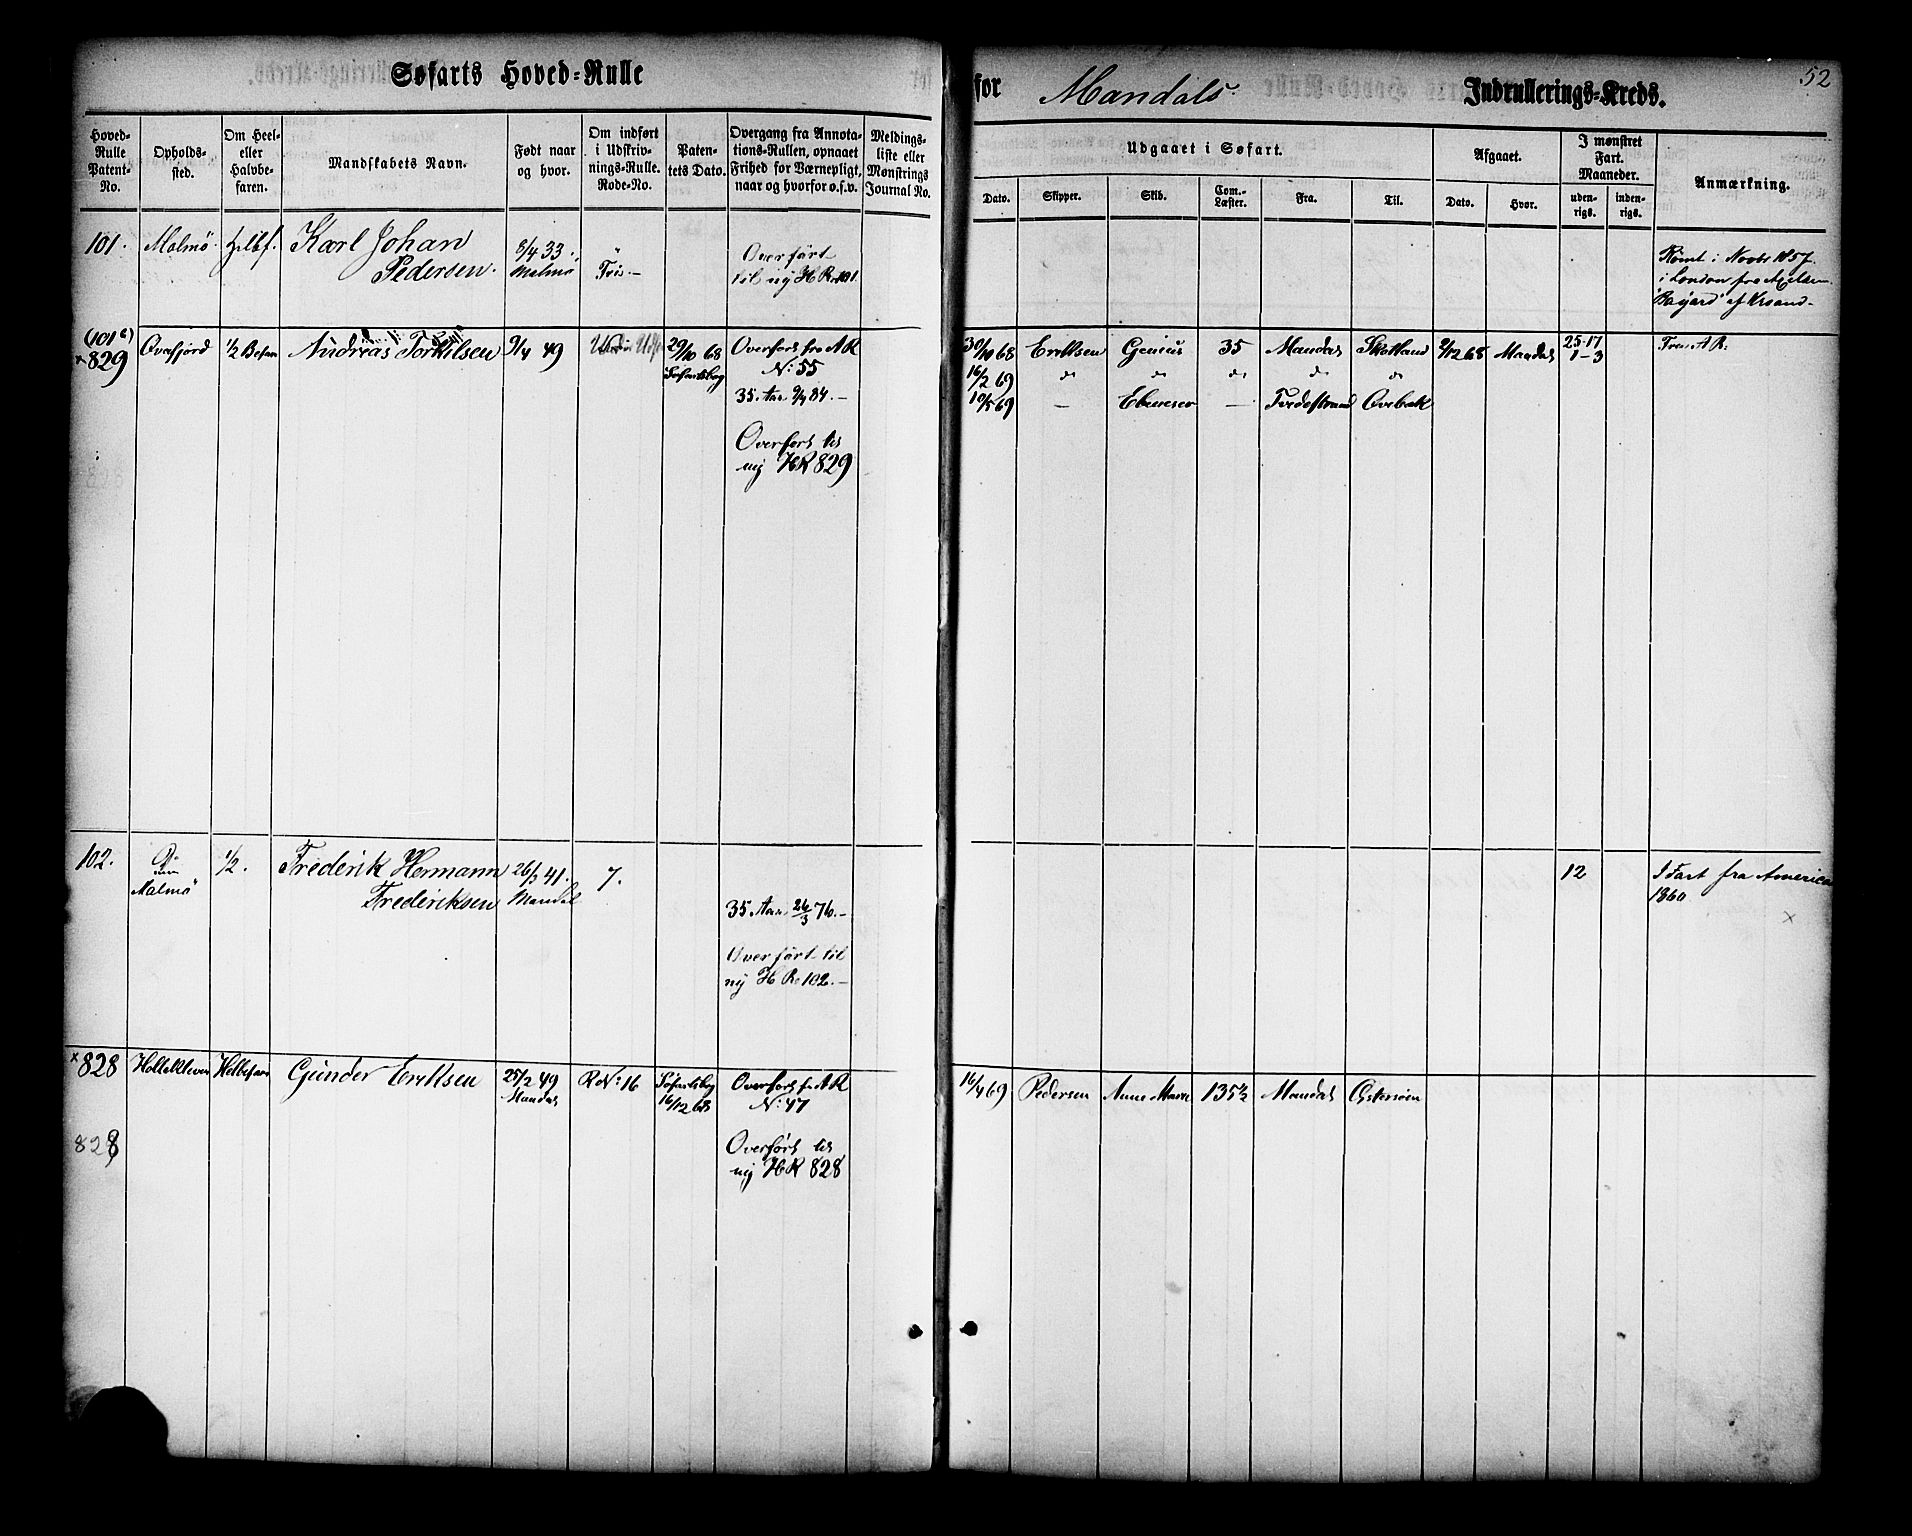 Søfarts Hoved-Rulle
for Mandals Indrullerings-Kreds. 52
Hoved-Rulle Patent-No.
Opholds-sted.
Om Heel- eller Halvbe-faren.
Mandskabets Navn.
Født naar og hvor.
Om indført i Udskriv-nings-Rulle. Rode-No.
Paten-tets Dato.
Overgang fra Annota-tions-Rullen, opnaaet Frihed for Værnepligt, naar og hvorfor o.s.v.
Meldings-liste eller Mønstrings Journal No.
Udgaaet i Søfart.
Dato. Skipper. Skib. Com.-Læster. Fra. Til.
Afgaaet.
Dato. Hvor.
I mønstret Fart. Maaneder.
uden-rigs. inden-rigs.
Anmærkning.
101. Malmö Hlbf. Karl Johan
Pedersen.
8/4 33.
Malmö
Fri.—
Overfört
til ny H R 101.
Rømt i Novbr 1857
i London fra
"Bayard" af Krsand-
(101 c)
×829
Ovefjord 1/2 Befar Andreas Torkilsen 9/4 49
29/10 68
Søfartsbog
Overført fra A R
N: 55
35 Aar 9/4 84.—
Overført til
ny HR 829
30/10 68 Eriksen Genius 35 Mandal Skotland 2/12 68 Mandal 25-17
1-3
Fra A R:
16/2 69 do do do do do
10/5 69 — Ebeneser — Tvedestrand
102. Malmö 1/2. Frederik Hermann
Frederiksen
26/3 41.
Mandal
7.
35 Aar 26/3 76.—
Overfört til
ny H R 102.—
12
I Fart fra America
1860
×
×828 Hollekleven Halbefaren Gunder Eriksen
25/2 49
Mandal
R.N: 16
Søfartsbog
16/12 68
Overført fr A R
N: 47
828
Overført til
ny HR 828
16/4 69 Pedersen Anne Marie 135 1/2 Mandal Østersøen